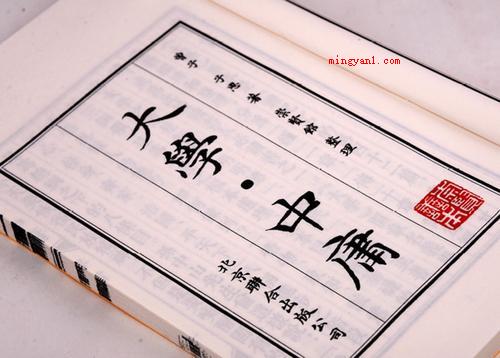 mingyan1.com
曾子 子思 著 崇賢館 整理
大學·中庸
北京聯合出版公司